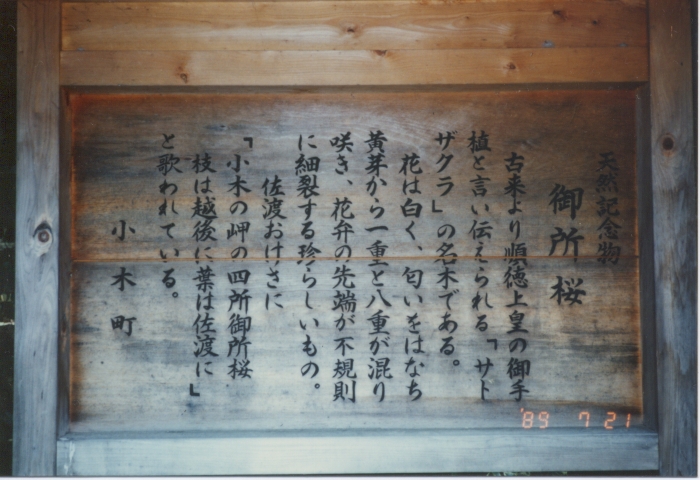 天然記念物
御所桜
古来より順徳上皇の御手
植と言い伝えられる「サト
ザクラ」の名木である。
花は白く、匂いをはなち
黄芽から一重と八重が混り
咲き、花弁の先端が不規則
に細裂する珍らしいもの。
佐渡おけさに
「小木の岬の四所御所桜
枝は越後に葉は佐渡に」
と歌われている。
小木町
'89 7 21